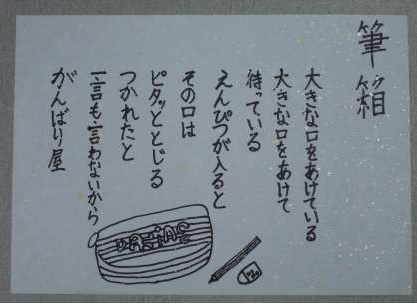 筆箱
大きな口をあけている
大きな口をあけて
待っている
えんぴつが入ると
その口は
ピタッととじる
つかれたと
一言も言わないから
がんばり屋